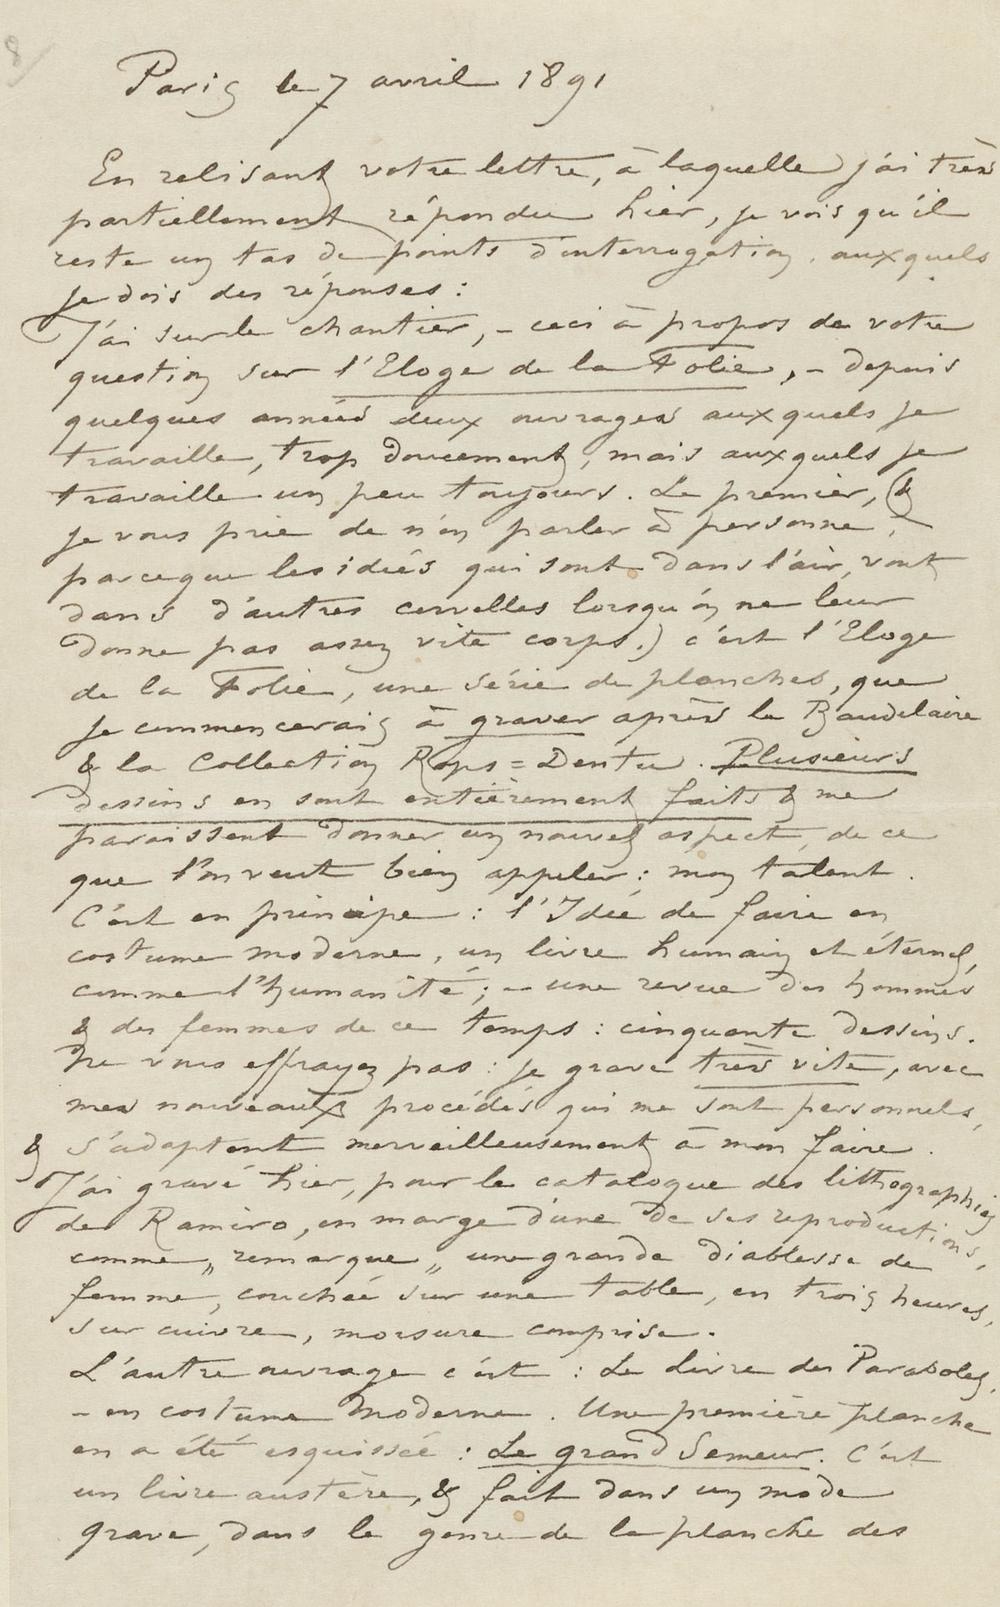 8
Paris le 7 avril 1891
En relisant votre lettre, à laquelle j'ai très
partiellement répondu hier, je vois qu'il
reste un tas de points d'interrogation, auxquels
je dois des réponses :
J'ai sur le chantier, – ceci à propos de votre
question sur l'Eloge de la Folie, – depuis
quelques années deux ouvrages auxquels je
travaille, trop doucement, mais auxquels je
travaille un peu toujours. Le premier, (&
je vous prie de n'en parler à personne,
parceque les idées qui sont dans l'air, vont
dans d'autres cervelles lorsqu'on ne leur
donne pas assez vite corps.) c'est l'Eloge
de la Folie, une série de planches, que
je commencerais à graver après le Baudelaire
& la Collection Rops=Dentu. Plusieurs
dessins en sont entièrement faits & me
paraissent donner un nouvel aspect, de ce
que l'on veut bien appeler : mon talent.
C'est en principe : l'Idée de faire en
costume moderne, un livre humain et éternel,
comme l'humanité ; – une revue des hommes
& des femmes de ce temps : cinquante dessins.
Ne vous effrayez pas : je grave très vite, avec
mes nouveaux procédés qui me sont personnels,
& s'adaptent merveilleusement à mon faire.
J'ai gravé hier, pour le catalogue des lithographies
de Ramiro, en marge d'une de ses reproductions,
comme „ remarque „ une grande diablesse de
femme, couchée sur une table, en trois heures,
sur cuivre, morsure comprise.
L'autre ouvrage c'est : Le Livre des Paraboles,
– en costume Moderne. Une première planche
en a été esquissée : Le grand Semeur. C'est
un livre austère, & fait dans un mode
grave, dans le genre de la planche des